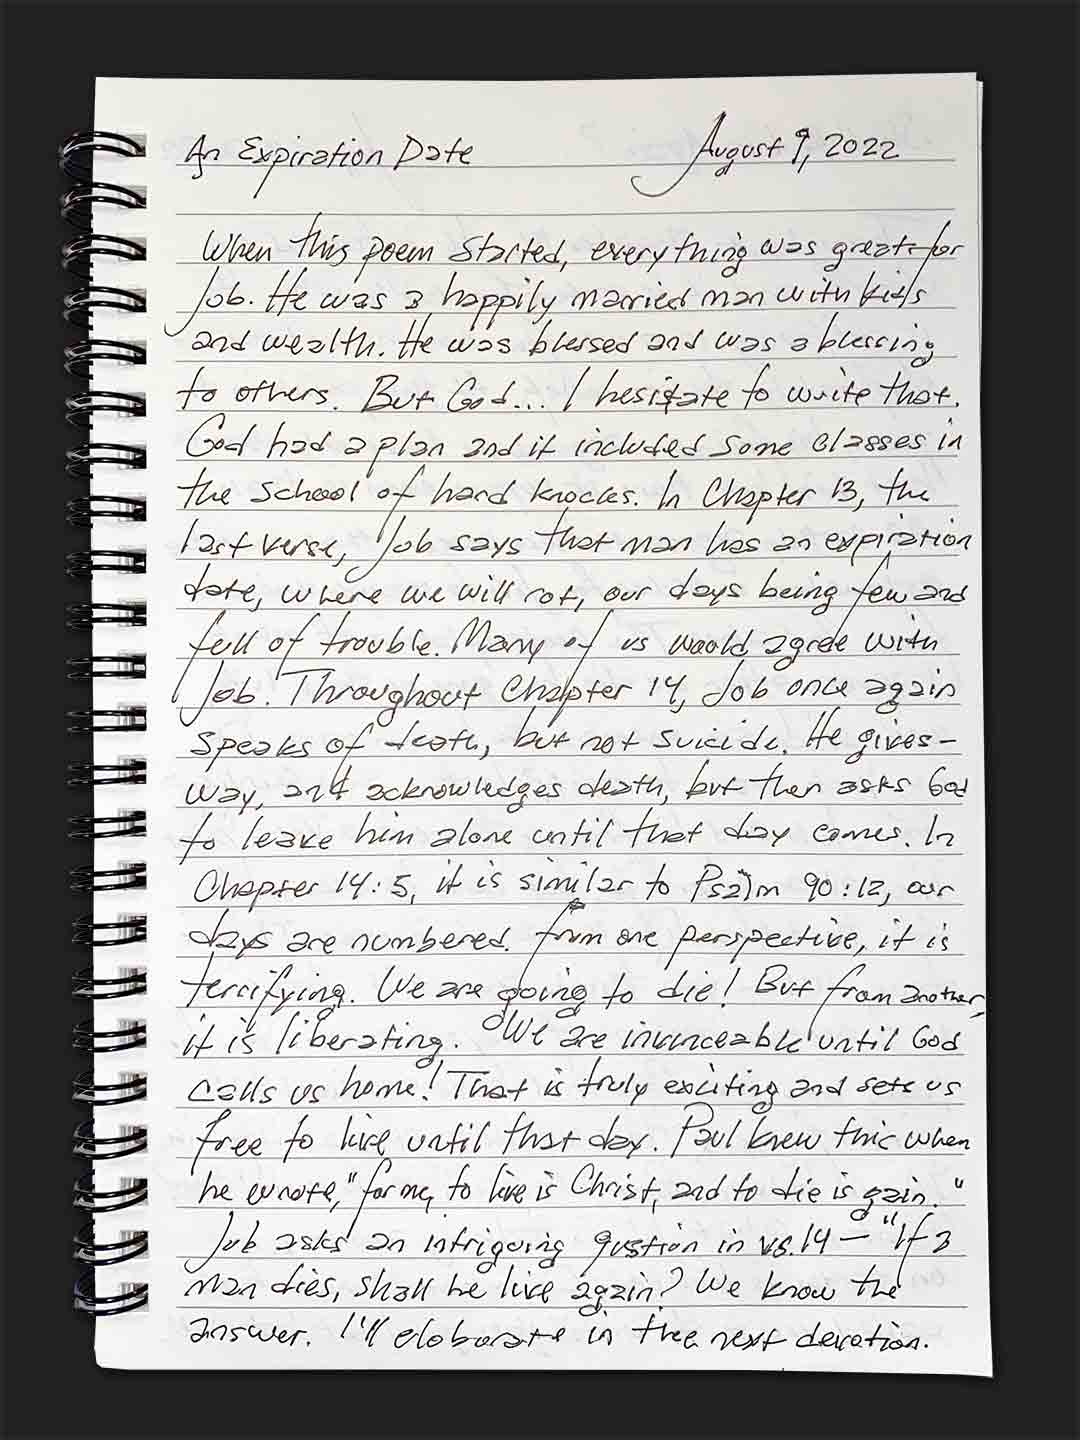 An Expiration Date August 9, 2022
When this poem started, everything was great for
Job. He was a happily married man with kids
and wealth. He was blessed and was a blessing
to others. But God... I hesitate to write that.
God had a plan and it included some classes in
the school of hard knocks. In Chapter 13, the
last verse, Job says that man has an expiration
date, where we will rot, our days being few and
full of trouble. Many of us would agree with
Job. Throughout Chapter 14, Job once again
speaks of death, but not suicide. He gives-
way, and acknowledges death, but then asks God
to leave him alone until that day comes. In
Chapter 14:5, it is similar to Psalm 90:12, our
days are numbered. From one perspective, it is
terrifying. We are going to die! But from another,
it is liberating. We are invinceable until God
calls us home! That is truly exciting and sets us
free to live until that day. Paul knew this when
he wrote, "for me, to live is Christ, and to die is gain."
Job asks an intriguing qustion in vs. 14 — "If a
man dies, shall he live again? We know the
answer. I'll eloborate in thee next devotion.